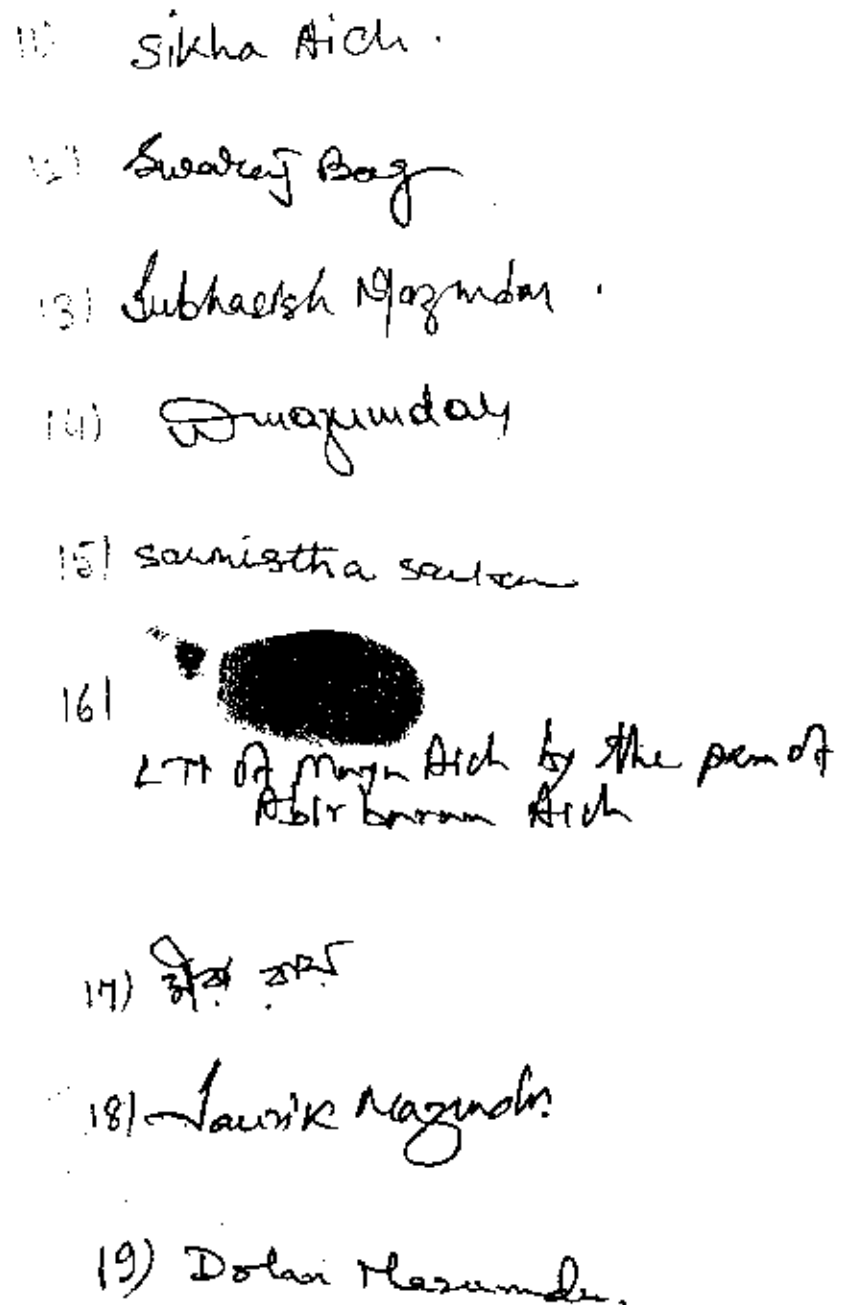 11) Sikha Aich.
12) Swaraj Bag
13) Subhasish Mazumdar.
14) Dmazumdar
15) Sarmistha Sarkar
16)
LTI of Maya Aich by the pen of
Abir baran Aich
17)
18) Sourik Mazumdar
19) Dolan Mazumder.